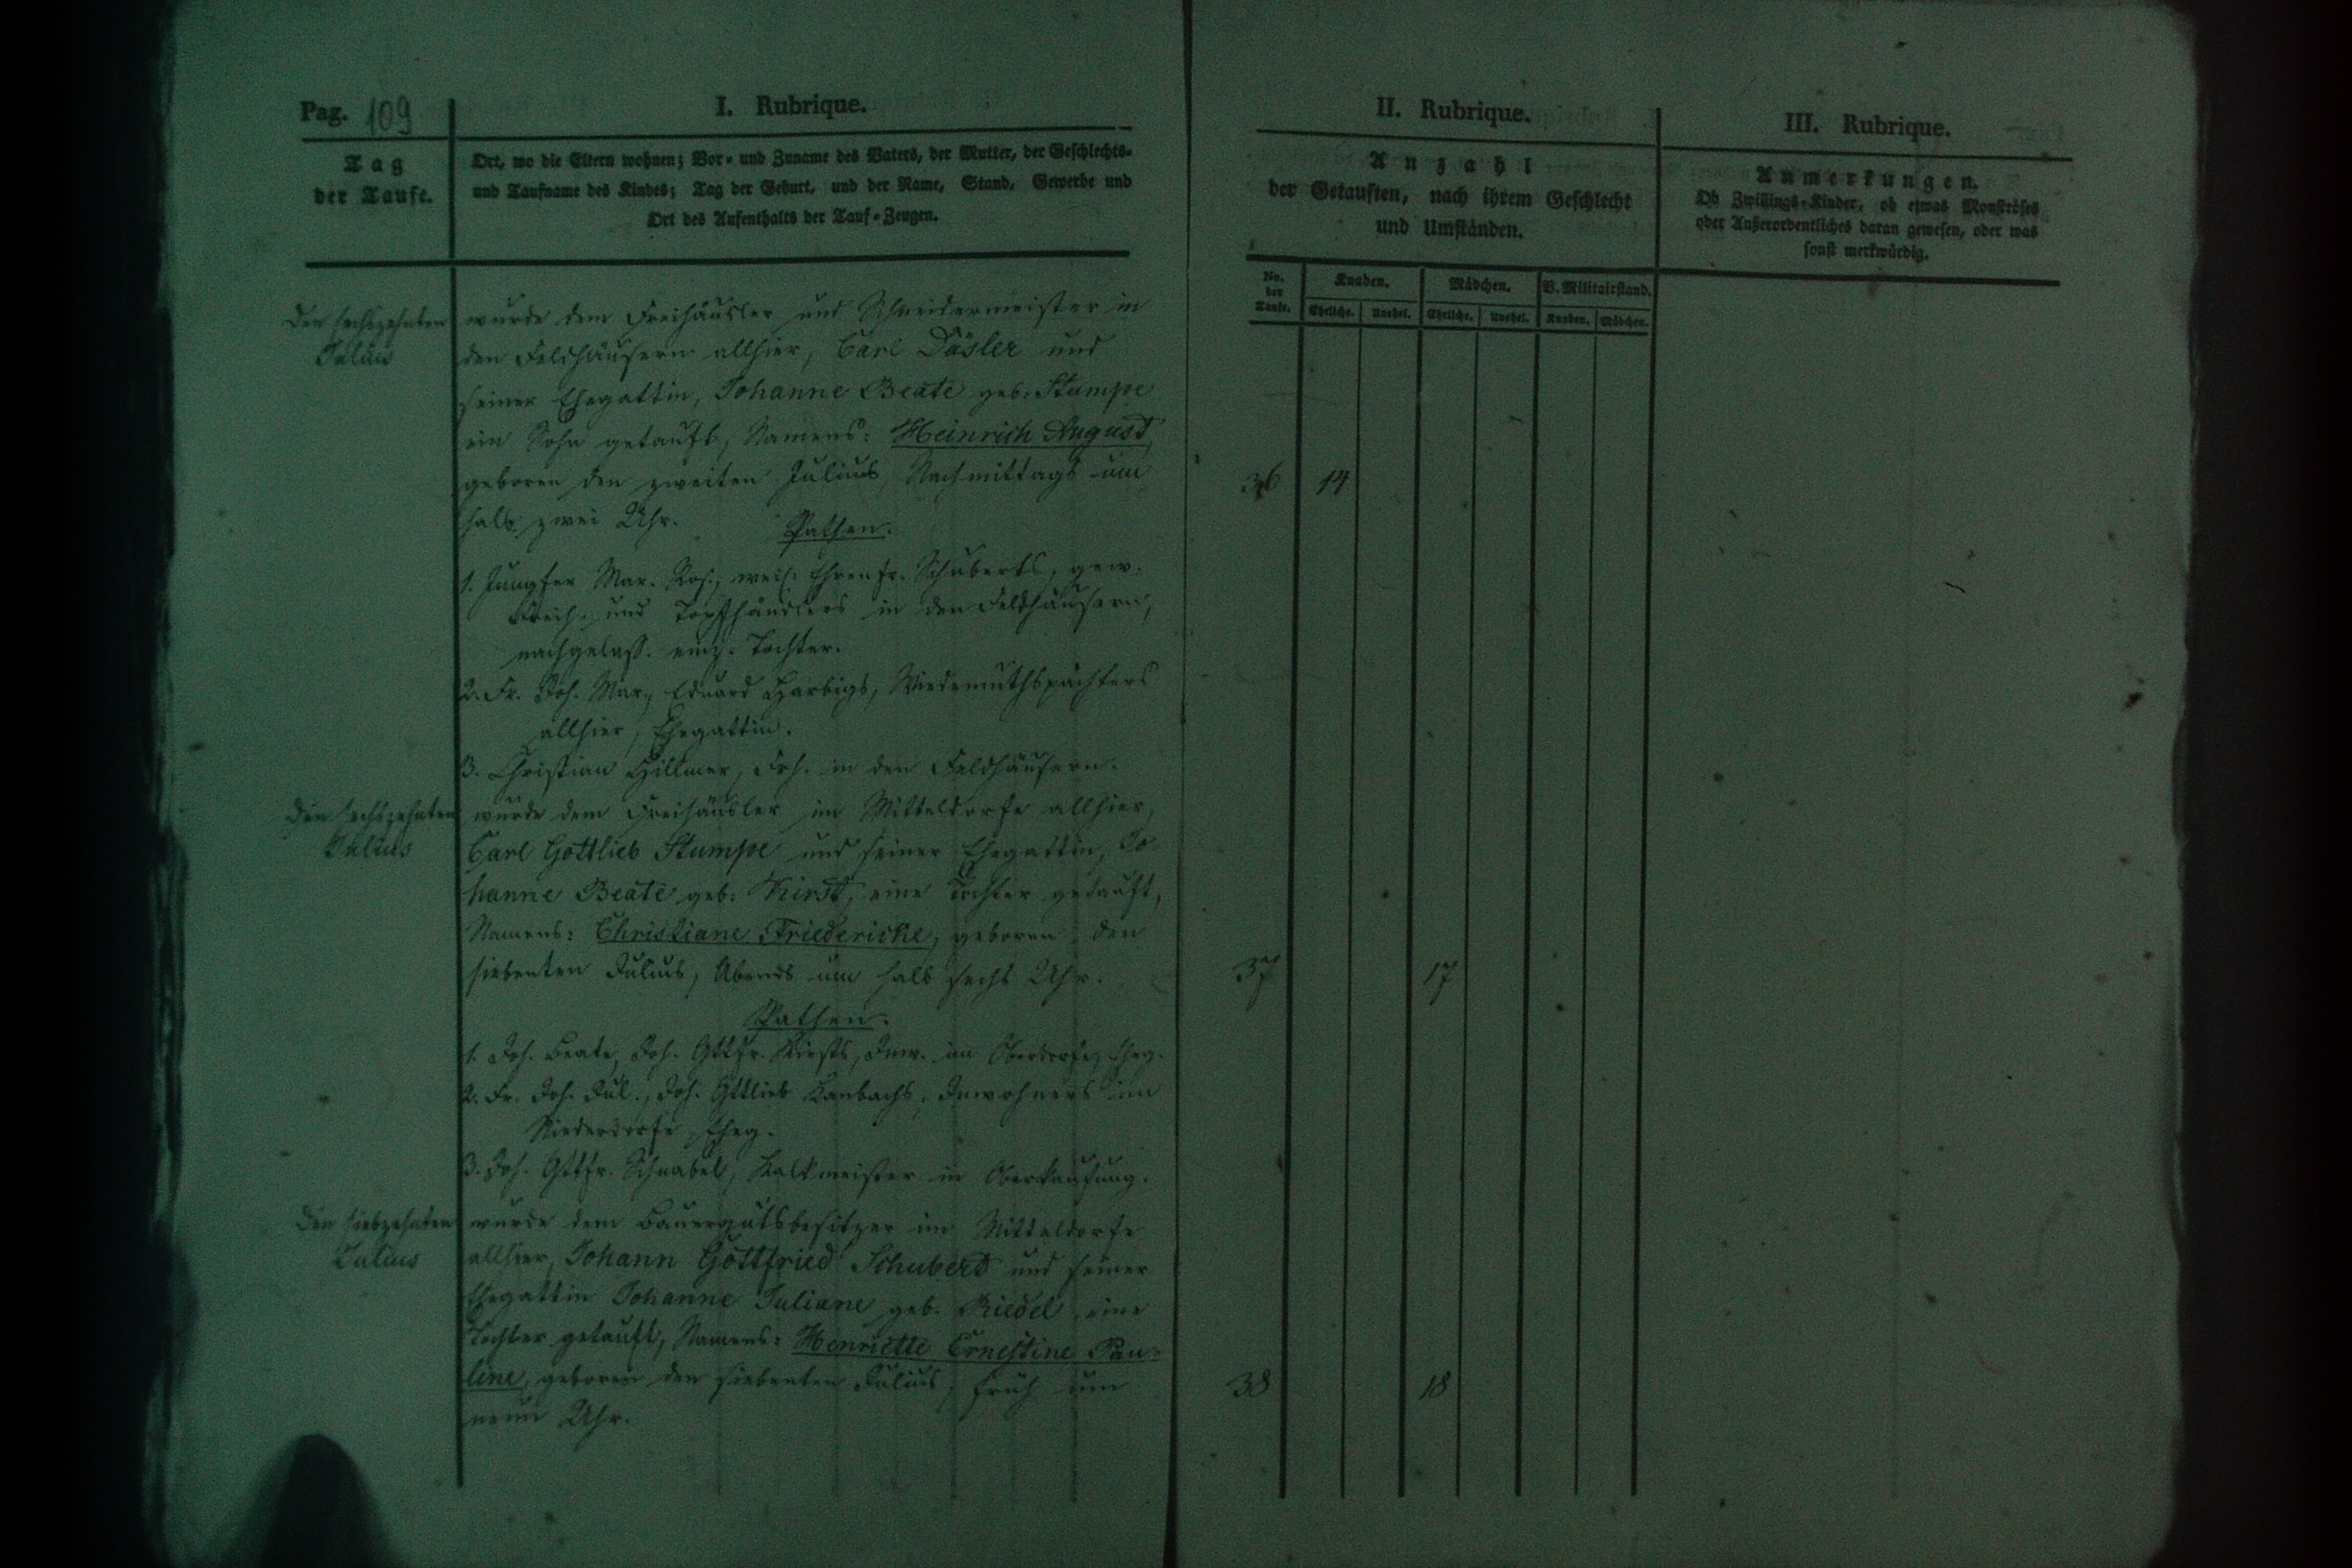 Pag. 109
I. Rubrique.
Tag
der Taufe.
Ort, wo die Eltern wohnen; Vor- und Zuname des Vaters, der Mutter, der Geschlechts-
und Taufname des Kindes; Tag der Geburt, und der Name, Stand, Gewerbe und
Ort des Aufenthalts der Tauf-Zeugen.
Den sechszehnten
Julius
wurde dem Freihäusler und Schneidermeister in
den Feldhäusern allhier, Carl Dösler und
seiner Ehegattin, Johanne Beate geb: Stumpe
ein Sohn getauft, Namens: Heinrich August,
geboren den zweiten Julius, Nachmittags um
halb zwei Uhr.
Pathen.
1. Jungfer Mar. Ros., weil. Ehrenfr. Schuberts, gew.
Freih. und Topfhändlers in den Feldhäusern,
nachgelass. einz. Tochter.
2. Fr. Joh. Mar., Eduard Harbigs, Wiedemuthspächters
allhier, Ehegattin.
3. Christian Hillmer, Frh. in den Feldhäusern.
Den sechszehnten
Julius
wurde dem Freihäusler im Mitteldorfe allhier,
Carl Gottlieb Stumpe und seiner Ehegattin, Jo-
hanne Beate geb: Kirst, eine Tochter getauft,
Namens: Christiane Friedericke, geboren den
siebenten Julius, Abends um halb sechs Uhr.
Pathen.
1. Joh. Beate, Joh. Gttfr. Kirsts, Inw. im Oberdorfe, Eheg.
2. Fr. Joh. Jul., Joh. Gttlieb Kambachs, Inwohners im
Niederdorfe, Eheg.
3. Joh. Gttfr. Schnabel, Kalkmeister in Oberkauffung.
Den siebzehnten
Julius
wurde dem Bauergutsbesitzer im Mitteldorfe
allhier, Johann Gottfried Schubert und seiner
Ehegattin Johanne Juliane geb. Riedel, eine
Tochter getauft, Namens: Henriette Ernestine Pau-
line, geboren den siebenten Julius, früh um
neun Uhr.
II. Rubrique.
Anzahl
der Getauften, nach ihrem Geschlecht
und Umständen.
No. der Taufe.
Knaben.
Mädchen.
V. Militairstand.
Eheliche. Unehel. Eheliche. Unehel. Knaben. Mädchen.
36 14
37 17
38 18
III. Rubrique.
Anmerkungen.
Ob Zwillings-Kinder, ob etwas Monströses
oder Außerordentliches daran gewesen, oder was
sonst merkwürdig.